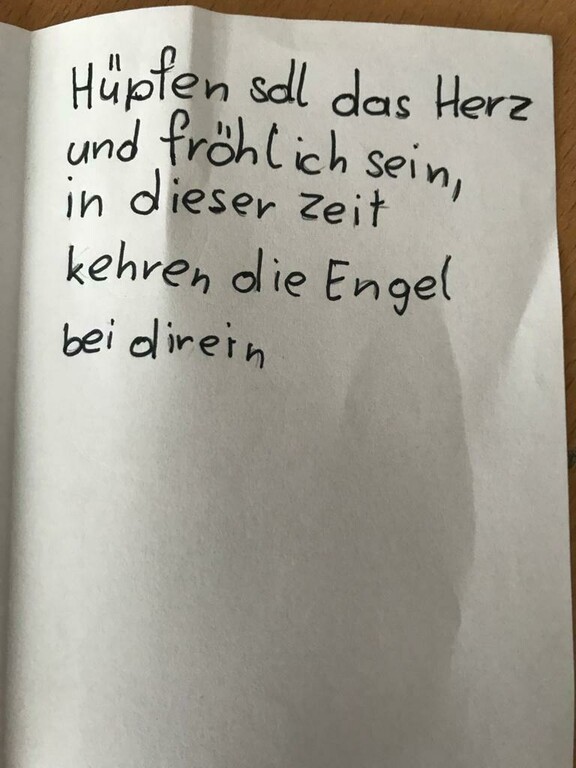 Hüpfen soll das Herz
und fröhlich sein,
in dieser Zeit
kehren die Engel
bei dir ein